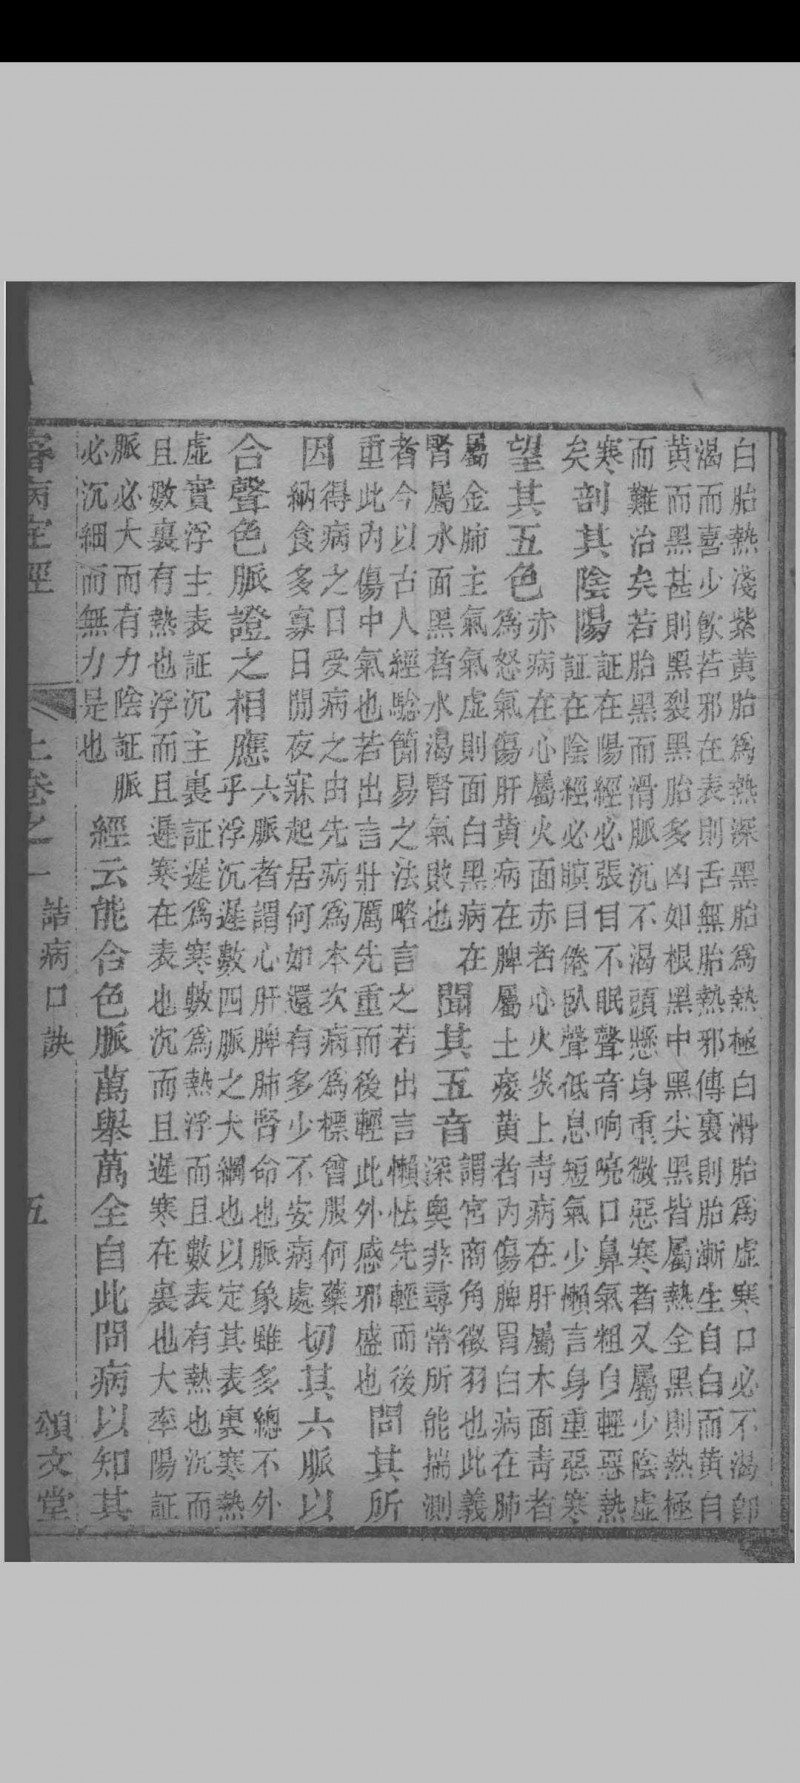 白胎熱淺紫黃胎爲熱深黑胎爲熱極白滑胎爲虛寒口必不渴卽
渴而喜少飲若邪在表則舌無胎熱邪傳裏則胎漸生自白而黃自
黃而黑甚則黑裂黑胎多凶如根黑中黑尖黑皆屬熱全黑則熱極
而難治矣若胎黑而滑脈沉不渴頭懸身重微惡寒者又屬少陰虛
寒
矣
剖其陰陽
証在陽經必張目不眠聲音响喨口鼻氣粗身輕惡熱
証在陰經必瞑目倦臥聲低息短氣少懶言身重惡寒
望其五色
赤病在心屬火面赤者心火炎上靑病在肝屬木面靑者
爲怒氣傷肝黃病在脾屬土痿黃者內傷脾胃白病在肺
屬金肺主氣氣虛則面白黑病在
腎屬水面黑者水渴腎氣敗也
聞其五音
謂宮商角徵羽也此義
深奧非尋常所能揣測
者今以古人經驗簡易之法略言之若出言懶怯先輕而後
重此內傷中氣也若出言壯厲先重而後輕此外感邪盛也
問其所
因
得病之日受病之由先病爲本次病爲標曾服何藥
納食多寡日間夜寐起居何如還有多少不妥病處
切其六脈以
合聲色脈證之相應
六脈者謂心肝脾肺腎命也脈象雖多總不外
乎浮沉遲數四脈之大綱也以定其表裏寒熱
虛實浮主表証沉主裏証遲爲寒數爲熱浮而且數表有熱也沉而
且數裏有熱也浮而且遲寒在表也沉而且遲寒在裏也大率陽証
脈必大而有力陰証脈
必沉細而無力是也
經云能合色脈萬舉萬全自此問病以知其
審病定經
上卷之一
詰病口訣
五
頌文堂